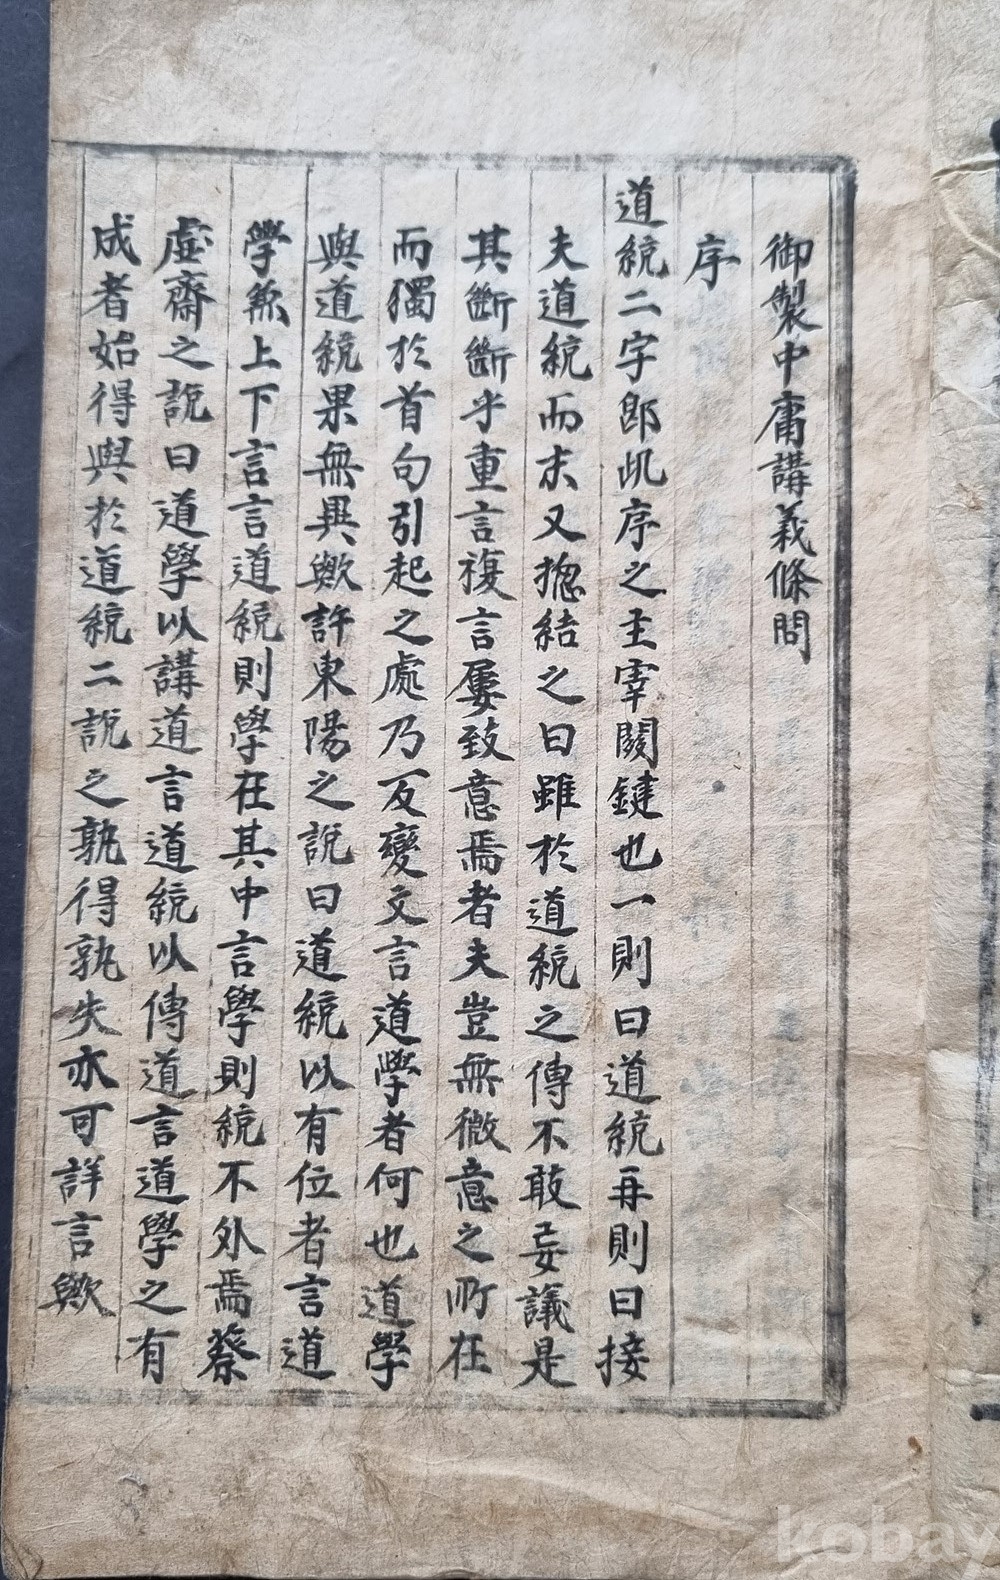 御製中庸講義條問
序
道統二字卽此序之主宰闗鍵也一則曰道統再則曰接
夫道統而末又揔結之曰雖於道統之傳不敢妄議是
其斷斷乎重言複言屢致意焉者夫豈無微意之所在
而獨於首句引起之處乃反變文言道學者何也道學
與道統果無異歟許東陽之說曰道統以有位者言道
學兼上下言言道統則學在其中言學則統不外焉蔡
虛齋之說曰道學以講道言道統以傳道言道學之有
成者始得與於道統二說之孰得孰失亦可詳言歟
kobay